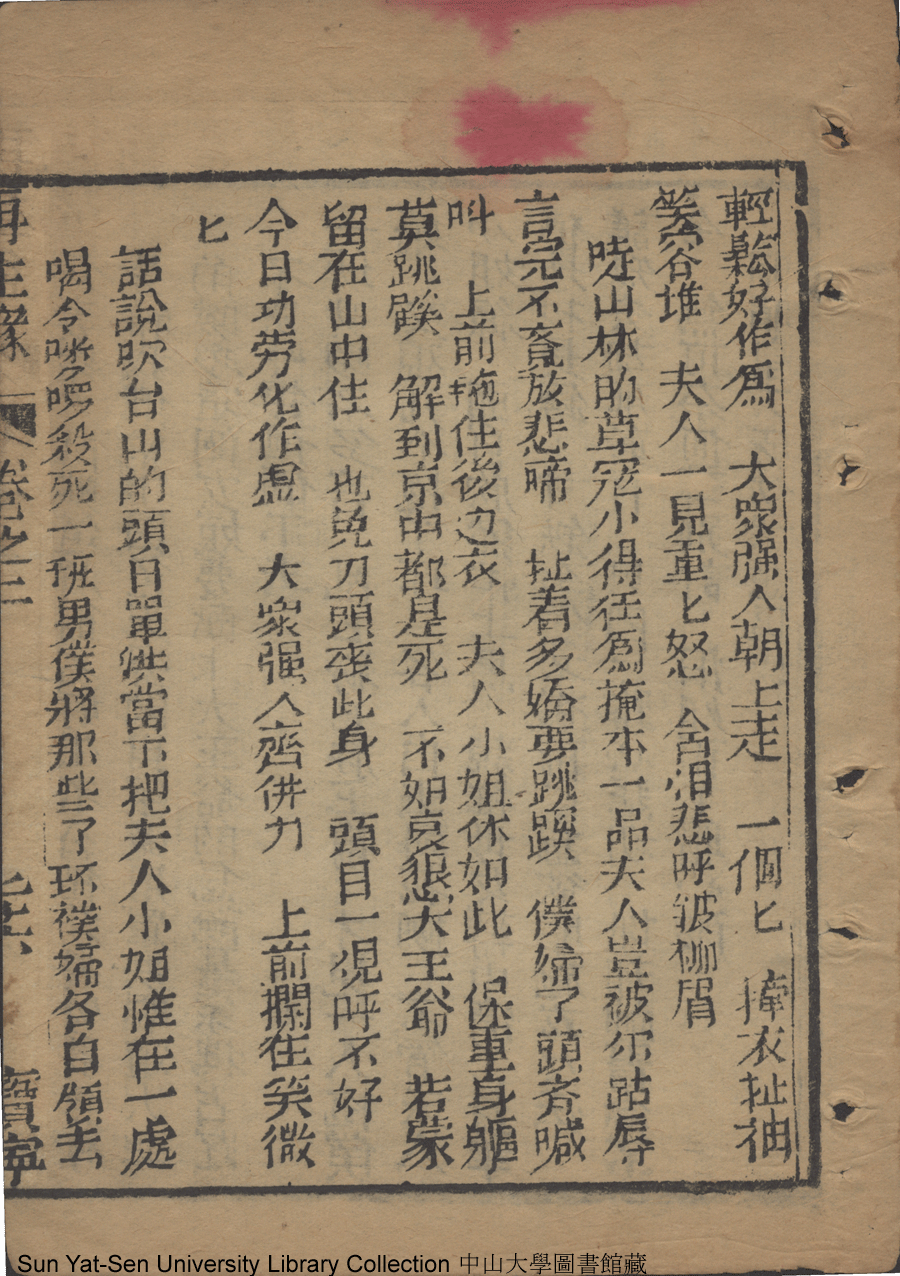 輕鬆好作爲　大眾强人朝上走　一個匕　掩衣扯袖
笑谷堆　夫人一見重匕怒　含泪悲呼皱柳眉
哓山林的草冦小得任爲掩本一品夫人豈被尔踮辱
言完不覔放悲啼　扯着多嬌要跳踭　僕婦了頭斉喊
呌　上前拖住後边衣　夫人小姐休如此　保重身軀
莫跳　解到京中都是死　不如哀懇大王爺　若蒙
留在山中住　也免刀頭丧此身　頭目一覌呼不好
今日功劳化作虚　大眾强人齊併力　上前攔住笑微
匕
話說吹台山的頭目單洪當下把夫人小姐惟在一處
喝令喽啰殺死一班男僕將那些了环襆婦各自領去
再生緣　卷之二　寶寧
Sun Yat-Sen University Library Collection 中山大學圖書館藏